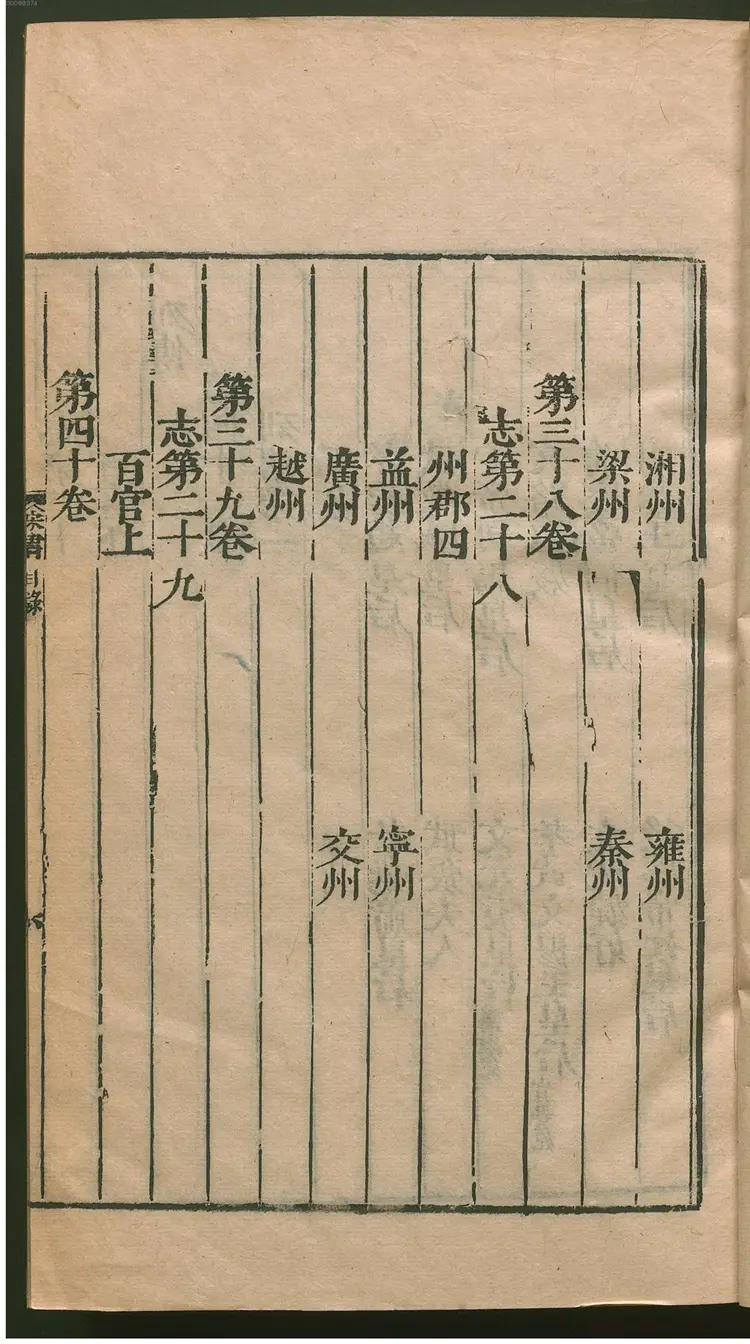 湘州 雍州
梁州 秦州
第三十八卷
志第二十八
州郡四
益州 寧州
廣州 交州
越州
第三十九卷
志第二十九
百官上
第四十卷
宋書目錄